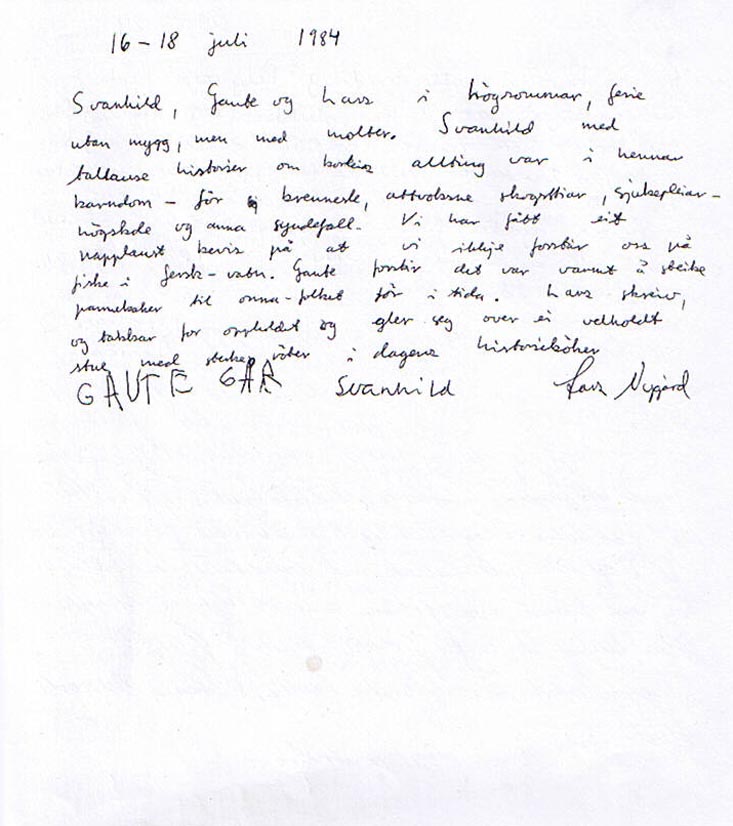 16-18 juli 1984
Svanhild, Gaute og Lars i högsommar, ferie
utan mygg, men med molter. Svanhild med
tallause historier om korleis allting var i hennar
barndom - för brennesle, attvoksne skogstiar, sjukepleiar-
högskole og anna syndefall. Vi har fått eit
napplaust bevis på at vi ikkje forstår oss på
fiske i fersk-vatn. Gaute forstår det var varmt å steike
pannekaker til onna-folket för i tida. Lars skreiv,
og takkar for oppholdet og gler seg over ei velholdt
stue med sterke röter i dagens historieböker
GAUTE GÅR Svanhild Lars Nygård